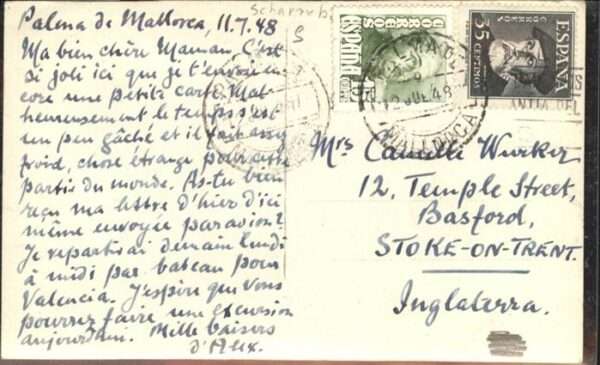 Scharnh
Palma de Mallorca, 11.7.48
S
Ma bien chère Maman. C'est
si joli ici que je t'envoie en-
core une petite carte. Mal-
heureusement le temps s'est
un peu gâché et il fait assez
froid, chose étrange pour cette
partie du monde. As-tu bien
reçu ma lettre d'hier d'ici
même envoyée par avion?
Je repartirai demain lundi
à midi par bateau pour
Valencia. J'espère que vous
pourrez faire une excursion
aujourd'hui. Mille baisers
d'Alex.
CORREOS
ESPAÑA
MALLORCA
12 JUL 48
CORREOS
ESPAÑA
35 CENTIMOS
Mrs Camille Wurker
12, Temple Street,
Basford,
STOKE-ON-TRENT.
Inglaterra.